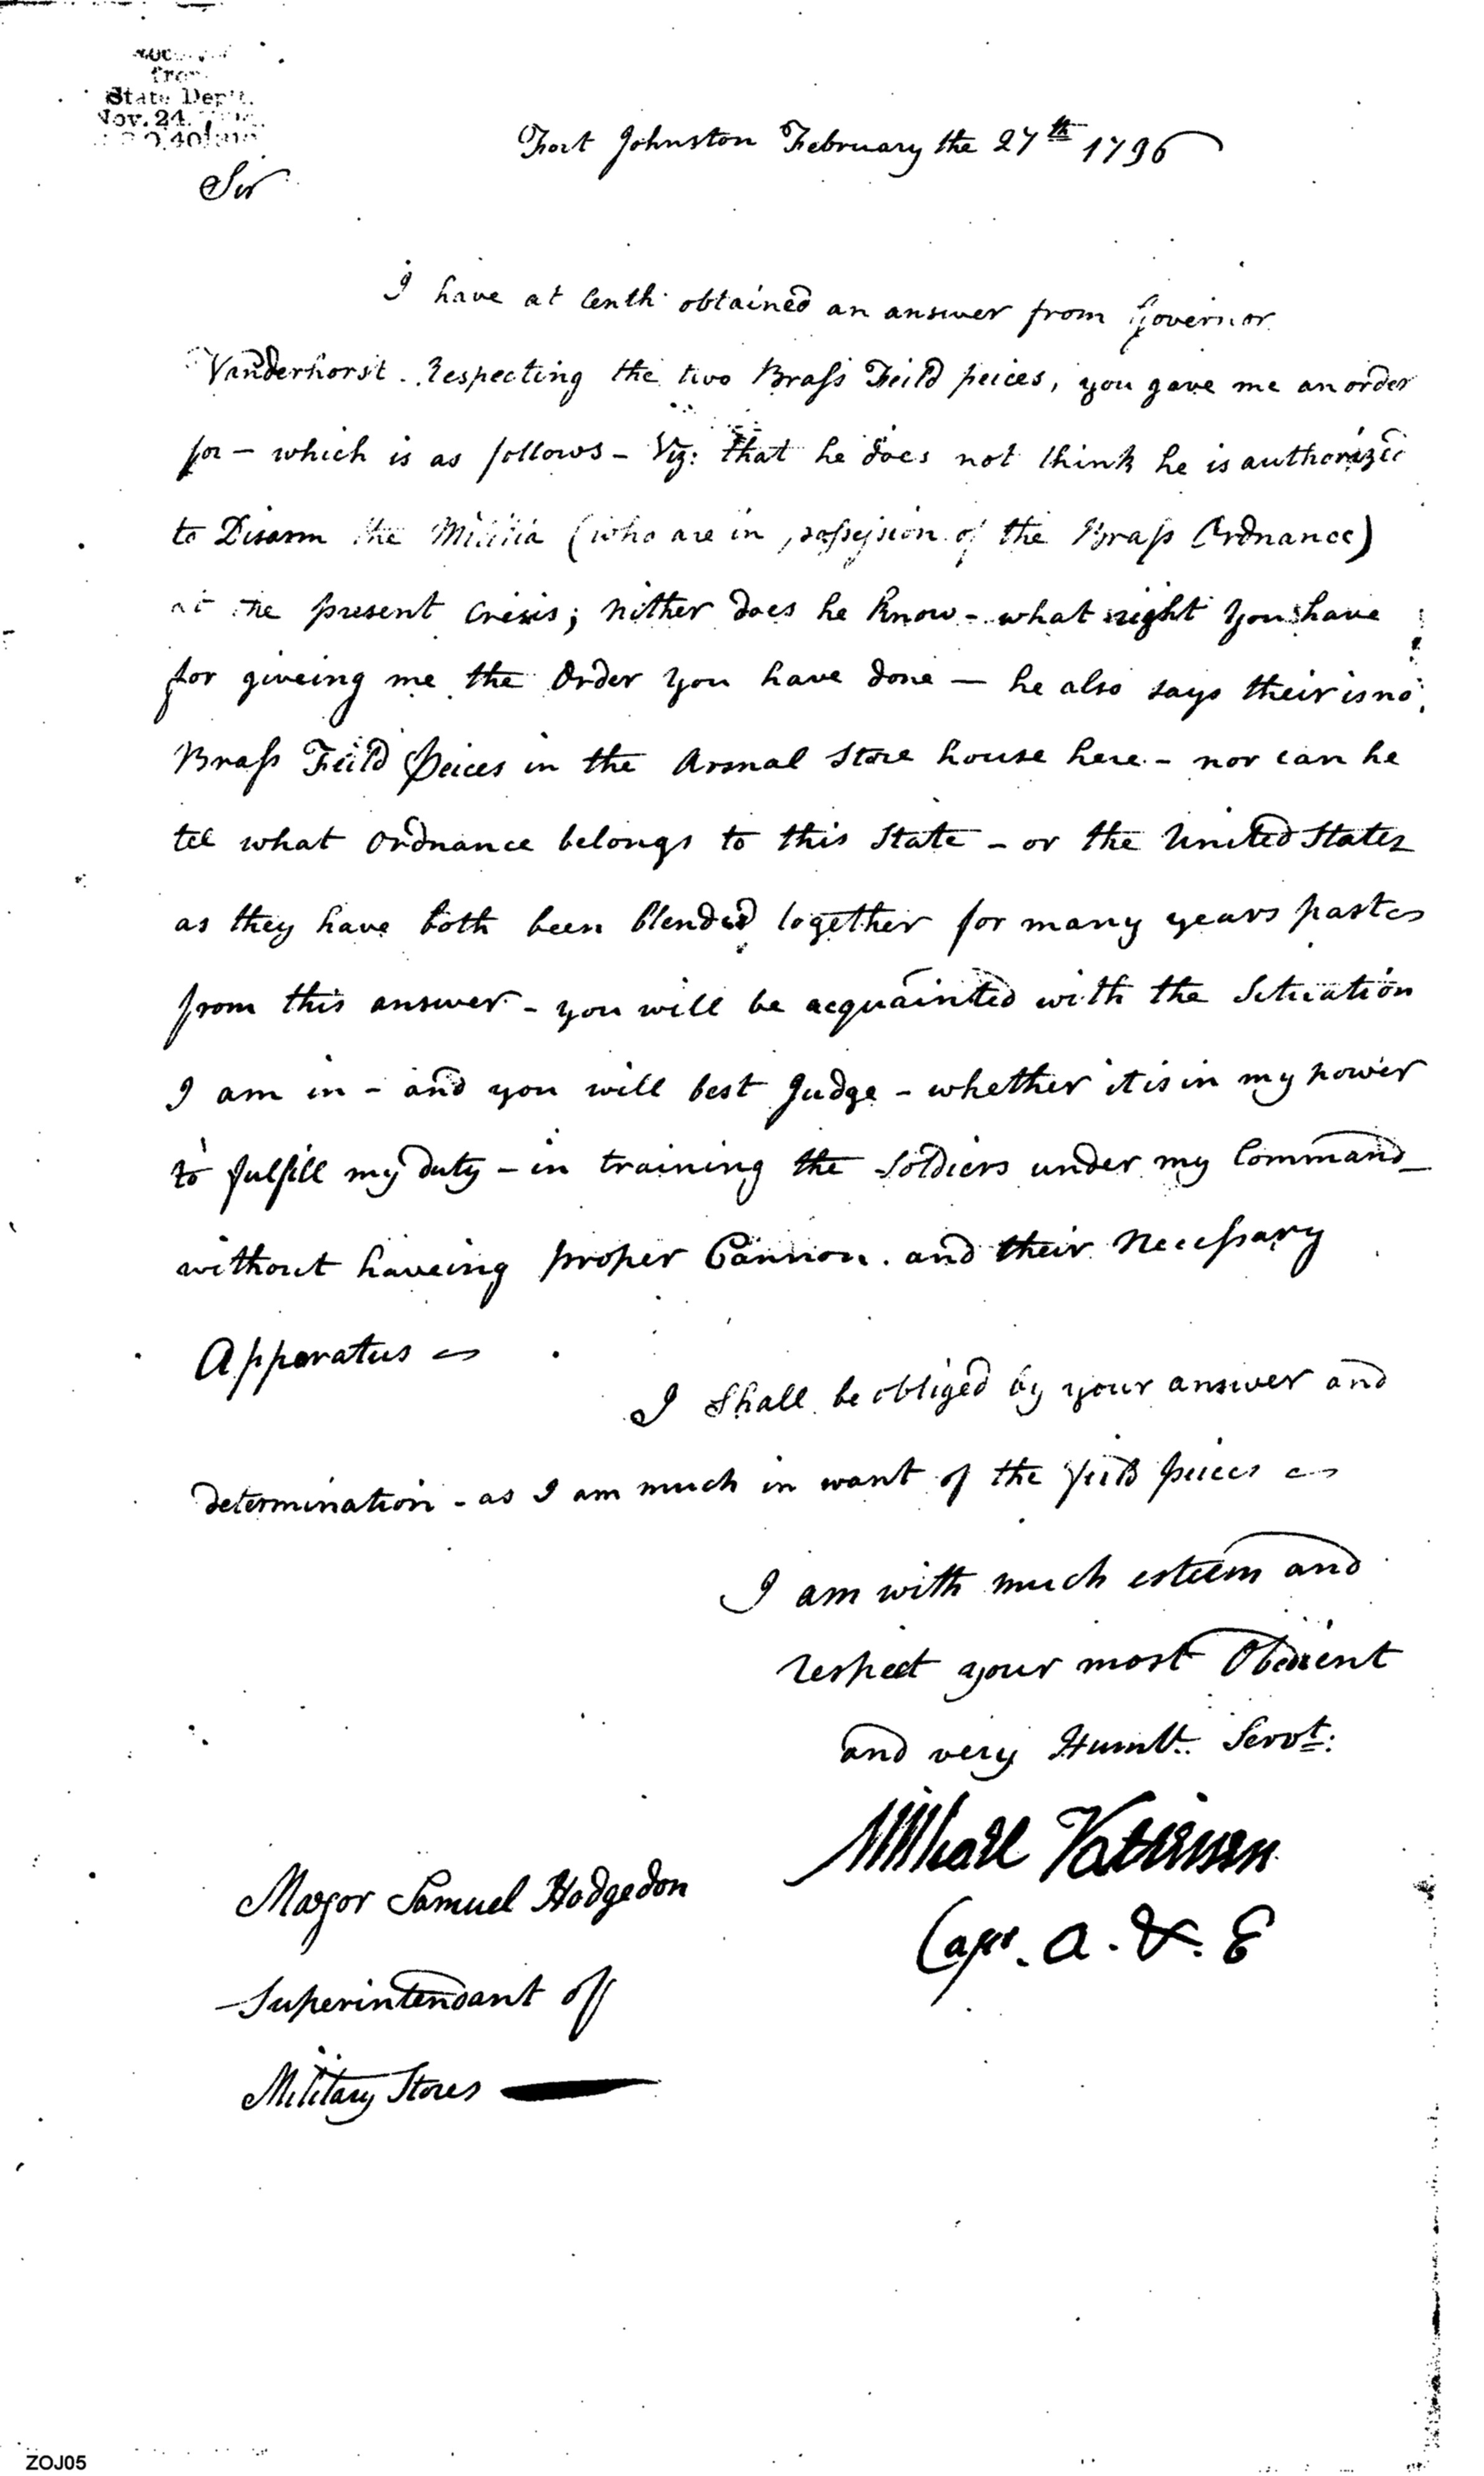 from
State Dep't.
Nov. 24.
Fort Johnston February the 27th 1796
Sir
I have at lenth obtained an answer from Governor
Vanderhorst. Respecting the two Brass Feild peices, you gave me an order
for – which is as follows – Viz: that he does not think he is authorized
to Disarm the Militia (who are in possession of the Brass Ordnance)
at the present Crisis; nither does he know – what right you have
for giveing me the Order you have done — he also says their is no
Brass Feild Peices in the Arsnal Store house here – nor can he
tel what Ordnance belongs to this State – or the United States
as they have both been blended together for many years past
from this answer – you will be acquainted with the Situation
I am in – and you will best Judge – whether it is in my power
to fulfill my duty – in training the Soldiers under my Command
without haveing proper Cannon. and their Necessary
Apparatus
I Shall be obliged by your answer and
determination – as I am much in want of the feild peices
I am with much esteem and
respect your most Obedient
and very Humble Servt:
Michael Kalteisen
Capt. A. & E
Mayor Samuel Hodgedon
Superintendant off
Military Stores
ZOJ05